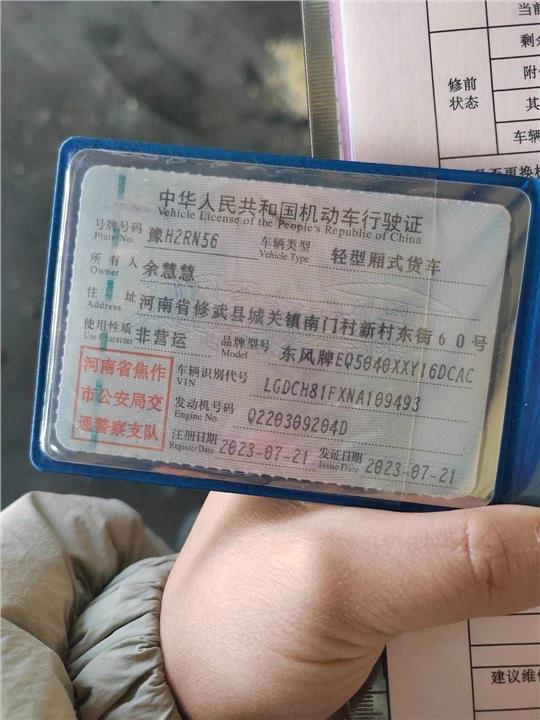 当前
剩余
修前
状态
附
其
车辆
是否更换
中华人民共和国机动车行驶证
Vehicle License of the People's Republic of China
号牌号码 豫H2RN56 车辆类型 轻型厢式货车
Plate No. Vehicle Type
所有人 余慧慧
Owner
住址 河南省修武县城关镇南门村新村东街60号
Address
使用性质 非营运 品牌型号 东风牌EQ5040XXY16DCAC
Use Character Model
河南省焦作
市公安局交
通警察支队
车辆识别代号 LGDCH81FXNA109493
VIN
发动机号码 Q220309204D
Engine No.
注册日期 2023-07-21 发证日期 2023-07-21
Register Date Issue Date
建议维